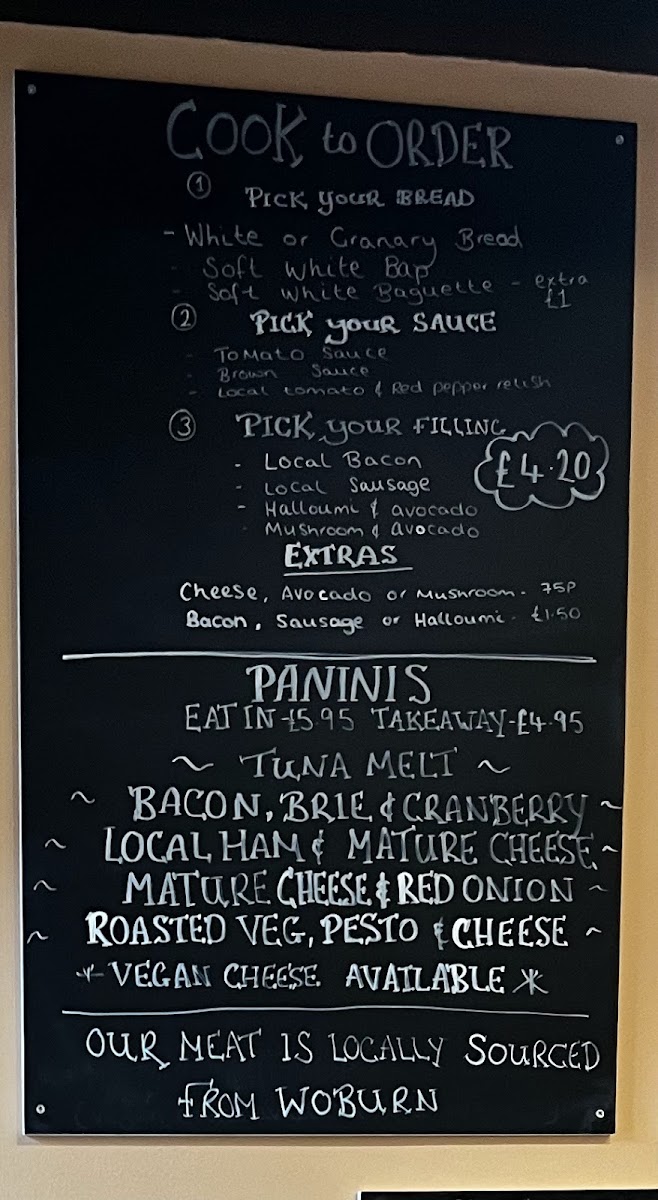 COOK to ORDER
① PICK your BREAD
- White or Granary Bread
- Soft White Bap
- Soft White Baguette - extra £1
② PICK your SAUCE
- Tomato Sauce
- Brown Sauce
- Local tomato & Red pepper relish
③ PICK your FILLING
- Local Bacon
£4.20
- Local Sausage
- Halloumi & avocado
- Mushroom & avocado
EXTRAS
Cheese, Avocado or Mushroom - 75P
Bacon, Sausage or Halloumi - £1.50
PANINIS
EAT IN - £5.95 TAKEAWAY - £4.95
~ TUNA MELT ~
~ BACON, BRIE & CRANBERRY ~
~ LOCAL HAM & MATURE CHEESE ~
~ MATURE CHEESE & RED ONION ~
~ ROASTED VEG, PESTO & CHEESE ~
* VEGAN CHEESE AVAILABLE *
OUR MEAT IS LOCALLY SOURCED
FROM WOBURN